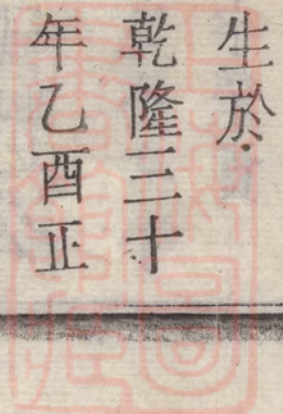 生於
乾隆三十
年乙酉正